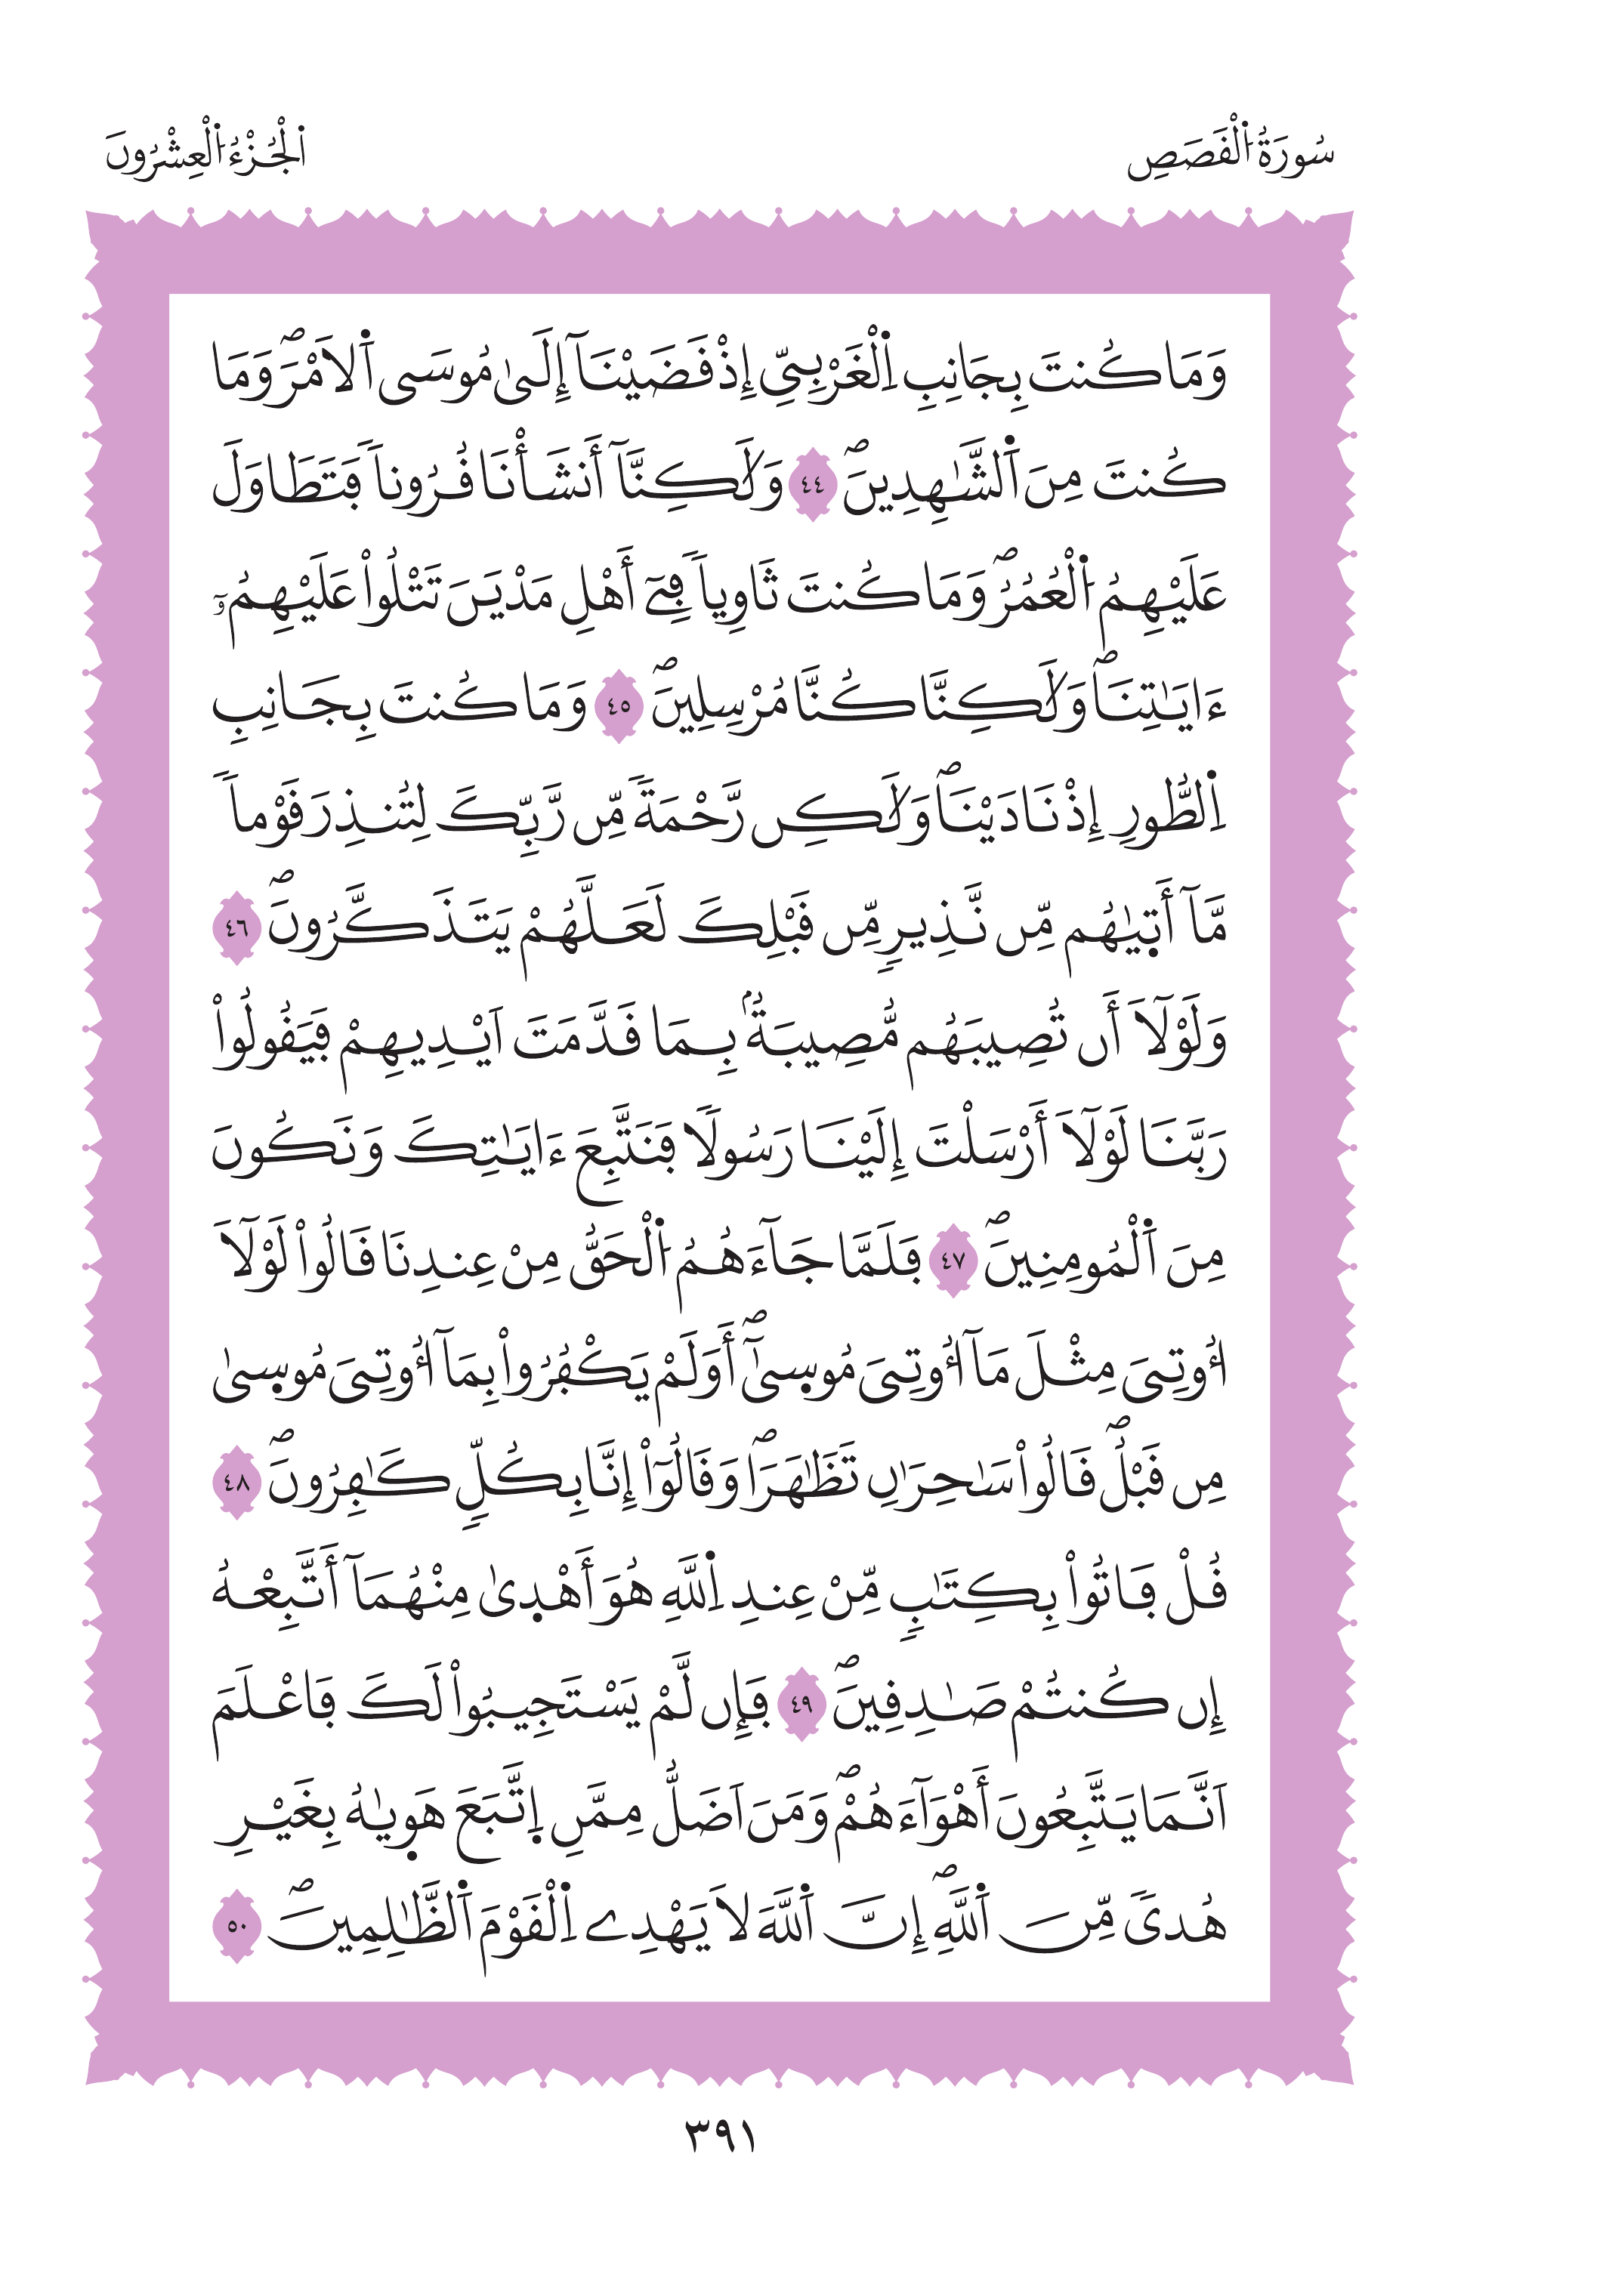 سُورَةُ اُ۬لْقَصَصِ
اَ۬لْجُزْءُ اُ۬لْعِشْرُونَ
وَمَا كُنتَ بِجَانِبِ اِ۬لْغَرْبِيِّ إِذْ قَضَيْنَآ إِلَىٰ مُوسَى اَ۬لَامْرَۖ وَمَا
كُنتَ مِنَ اَ۬لشَّٰهِدِينَۖ ٤٤ وَلَٰكِنَّآ أَنشَأْنَا قُرُوناٗ فَتَطَاوَلَ
عَلَيْهِمُ اُ۬لْعُمُرُۖ وَمَا كُنتَ ثَاوِياٗ فِےٓ أَهْلِ مَدْيَنَ تَتْلُواْ عَلَيْهِمُۥٓ
ءَايَٰتِنَاۖ وَلَٰكِنَّا كُنَّا مُرْسِلِينَۖ ٤٥ وَمَا كُنتَ بِجَانِبِ
اِ۬لطُّورِ إِذْ نَادَيْنَاۖ وَلَٰكِن رَّحْمَةٗ مِّن رَّبِّكَ لِتُنذِرَ قَوْماٗ
مَّآ أَت۪يٰهُم مِّن نَّذِيرٖ مِّن قَبْلِكَ لَعَلَّهُمْ يَتَذَكَّرُونَۖ ٤٦
وَلَوْلَآ أَن تُصِيبَهُم مُّصِيبَةُۢ بِمَا قَدَّمَتَ اَيْدِيهِمْ فَيَقُولُواْ
رَبَّنَا لَوْلَآ أَرْسَلْتَ إِلَيْنَا رَسُولاٗ فَنَتَّبِعَ ءَايَٰتِكَ وَنَكُونَ
مِنَ اَ۬لْمُومِنِينَۖ ٤٧ فَلَمَّا جَآءَهُمُ اُ۬لْحَقُّ مِنْ عِندِنَا قَالُواْ لَوْلَآ
أُوتِيَ مِثْلَ مَآ أُوتِيَ مُوس۪ىٰٓۖ أَوَلَمْ يَكْفُرُواْ بِمَآ أُوتِيَ مُوس۪ىٰ
مِن قَبْلُۖ قَالُواْ سَٰحِرَٰنِ تَظَّٰهَرَاۖ وَقَالُوٓاْ إِنَّا بِكُلّٖ كَٰفِرُونَۖ ٤٨
قُلْ فَاتُواْ بِكِتَٰبٖ مِّنْ عِندِ اِ۬للَّهِ هُوَ أَهْد۪ىٰ مِنْهُمَآ أَتَّبِعْهُ
إِن كُنتُمْ صَٰدِقِينَۖ ٤٩ فَإِن لَّمْ يَسْتَجِيبُواْ لَكَ فَاعْلَمَ
اَنَّمَا يَتَّبِعُونَ أَهْوَآءَهُمْۖ وَمَنَ اَضَلُّ مِمَّنِ اِ۪تَّبَعَ هَو۪يٰهُ بِغَيْرِ
هُدىٗ مِّنَ اَ۬للَّهِۖ إِنَّ اَ۬للَّهَ لَا يَهْدِے اِ۬لْقَوْمَ اَ۬لظَّٰلِمِينَۖ ٥٠
٣٩١